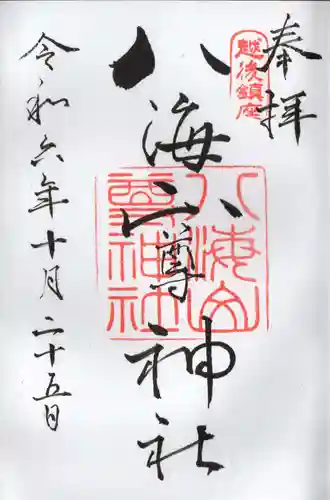 奉拝
越後鎮座
八海山尊神社
八海山尊神社
令和六年十月二十五日